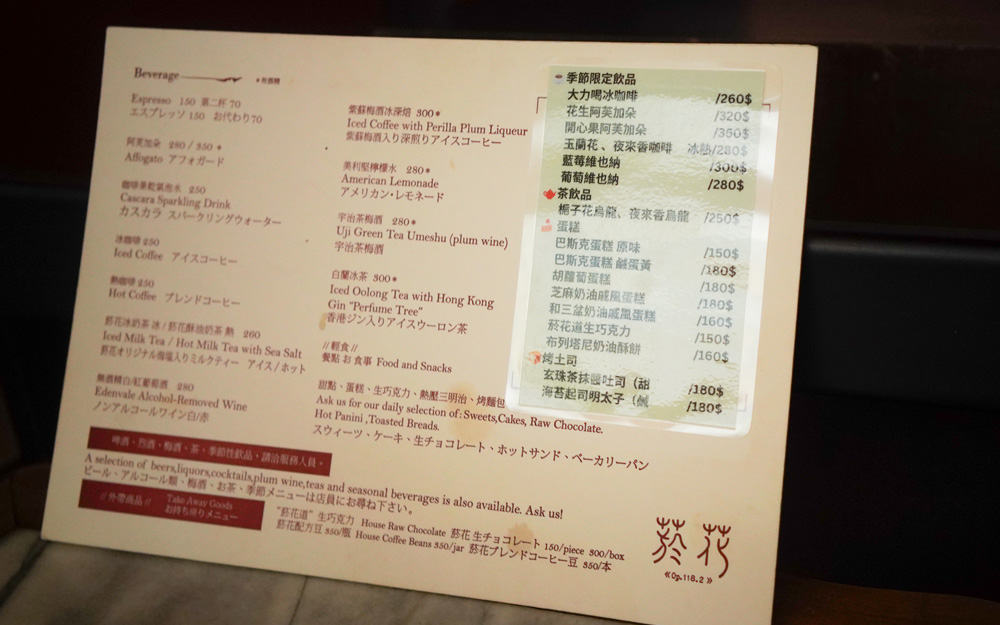 Beverage
*有酒精
Espresso 150 第二杯 70
エスプレッソ 150 お代わり70
阿芙加朵 280 / 350 *
Affogato アフォガード
咖啡果乾氣泡水 250
Cascara Sparkling Drink
カスカラ スパークリングウォーター
冰咖啡 250
Iced Coffee アイスコーヒー
熱咖啡 250
Hot Coffee ブレンドコーヒー
菸花冰奶茶 冰 / 菸花酥油奶茶 熱 260
Iced Milk Tea / Hot Milk Tea with Sea Salt
菸花オリジナル海塩入りミルクティー アイス / ホット
無酒精白/紅葡萄酒 280
Edenvale Alcohol-Removed Wine
ノンアルコールワイン白/赤
紫蘇梅酒冰深焙 300*
Iced Coffee with Perilla Plum Liqueur
紫蘇梅酒入り深煎りアイスコーヒー
美利堅檸檬水 280*
American Lemonade
アメリカン・レモネード
宇治茶梅酒 280*
Uji Green Tea Umeshu (plum wine)
宇治茶梅酒
白蘭冰茶 300*
Iced Oolong Tea with Hong Kong
Gin "Perfume Tree"
香港ジン入りアイスウーロン茶
// 輕食 //
餐點 お食事 Food and Snacks
甜點、蛋糕、生巧克力、熱壓三明治、烤麵包
Ask us for our daily selection of: Sweets,Cakes, Raw Chocolate.
Hot Panini ,Toasted Breads.
スウィーツ、ケーキ、生チョコレート、ホットサンド、ベーカリーパン
季節限定飲品
大力喝冰咖啡 /260$
花生阿芙加朵 /320$
開心果阿芙加朵 /350$
玉蘭花、夜來香咖啡 冰熱/280$
藍莓維也納 /300$
葡萄維也納 /280$
茶飲品
梔子花烏龍、夜來香烏龍 /250$
蛋糕
巴斯克蛋糕 原味 /150$
巴斯克蛋糕 鹹蛋黃 /180$
胡蘿蔔蛋糕 /180$
芝麻奶油戚風蛋糕 /180$
和三盆奶油戚風蛋糕 /160$
菸花道生巧克力 /150$
布列塔尼奶油酥餅 /160$
烤土司
玄珠茶抹醬吐司（甜 /180$
海苔起司明太子（鹹 /180$
啤酒、烈酒、梅酒、茶、季節性飲品，請洽服務人員。
A selection of beers,liquors,cocktails,plum wine,teas and seasonal beverages is also available. Ask us!
ビール、アルコール類、梅酒、お茶、季節メニューは店員にお尋ね下さい。
// 外帶商品 // Take Away Goods
お持ち帰りメニュー
"菸花道" 生巧克力 House Raw Chocolate 菸花 生チョコレート 150/piece 300/box
菸花配方豆 350/瓶 House Coffee Beans 350/jar 菸花ブレンドコーヒー豆 350/本
菸花
≪Op.118.2≫